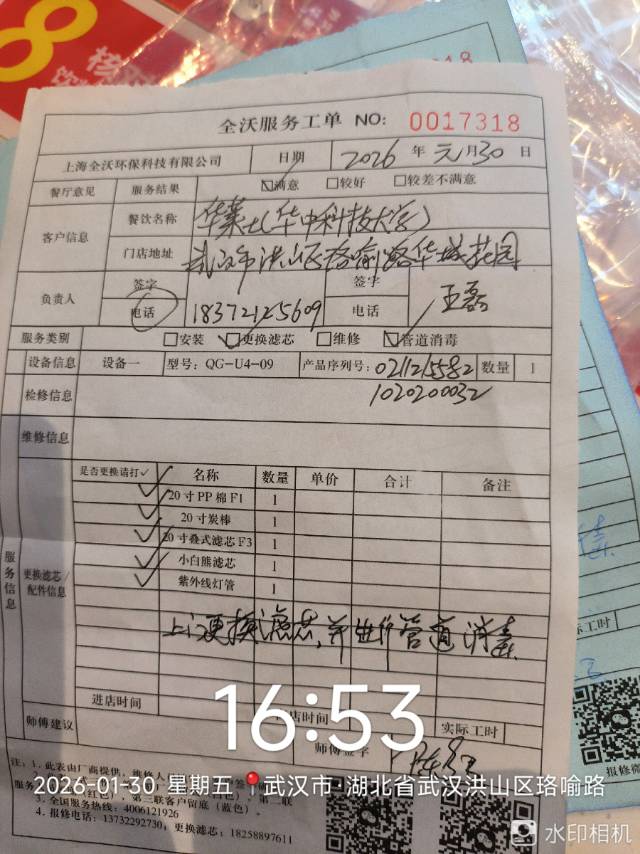 全沃服务工单 NO: 0017318
上海全沃环保科技有限公司 日期 2026 年 元 月 30 日
餐厅意见 服务结果 ☑满意 □较好 □较差不满意
客户信息 餐饮名称 华莱士(华中科技大学)
门店地址 武汉市洪山区珞喻路华城花园
负责人 签字 签字 王磊
电话 18372125609 电话
服务类别 □安装 ☑更换滤芯 □维修 ☑管道消毒
设备信息 设备一 型号: QG-U4-09 产品序列号: 0211215582 数量 1
检修信息 1020200032
维修信息
服务信息
更换滤芯/配件信息
是否更换请打✓ 名称 数量 单价 合计 备注
✓ 20寸PP棉F1 1
✓ 20寸炭棒 1
✓ 20寸叠式滤芯F3 1
✓ 小白熊滤芯 1
✓ 紫外线灯管 1
上门更换滤芯,并进行管道消毒
进店时间 店时间
师傅建议 实际工时
师傅签字
16:53
注: 1、此表由厂商提供, 维修人
(红色), 第三联客户留底 (蓝色)。
3、全国服务热线: 4006121926
4、报修电话: 13732292730; 更换滤芯: 18258897611
2026-01-30 星期五 武汉市·湖北省武汉洪山区珞喻路
水印相机
际工时
报修微